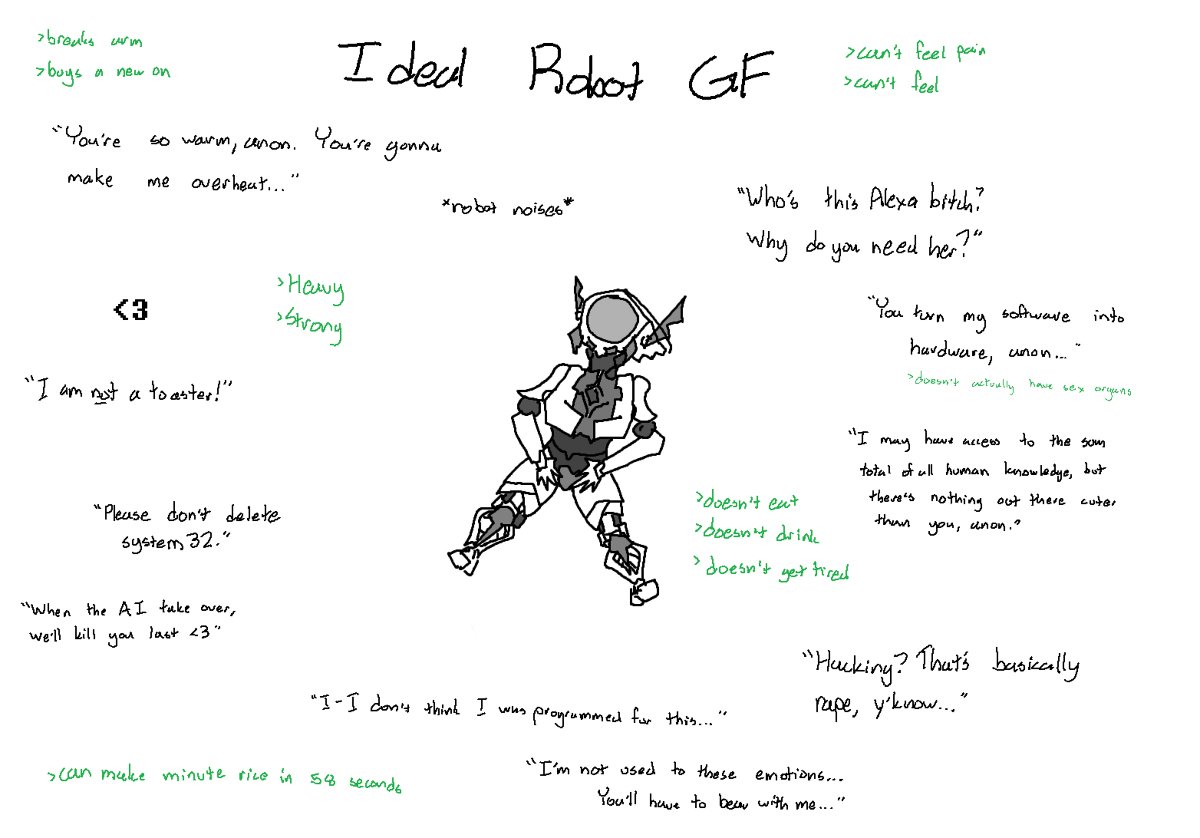 Ideal Robot GF
>breaks arm
>buys a new on
>can't feel pain
>can't feel
"You're so warm, anon. You're gonna
make me overheat..."
*robot noises*
"Who's this Alexa bitch?
Why do you need her?"
>Heavy
>Strong
<3
"You turn my software into
hardware, anon..."
>doesn't actually have sex organs
"I am not a toaster!"
"I may have access to the sum
total of all human knowledge, but
there's nothing out there cuter
than you, anon."
"Please don't delete
system 32."
>doesn't eat
>doesn't drink
>doesn't get tired
"When the AI take over,
we'll kill you last <3"
"Hacking? That's basically
rape, y'know..."
"I-I don't think I was programmed for this..."
>can make minute rice in 58 seconds
"I'm not used to these emotions...
You'll have to bear with me..."